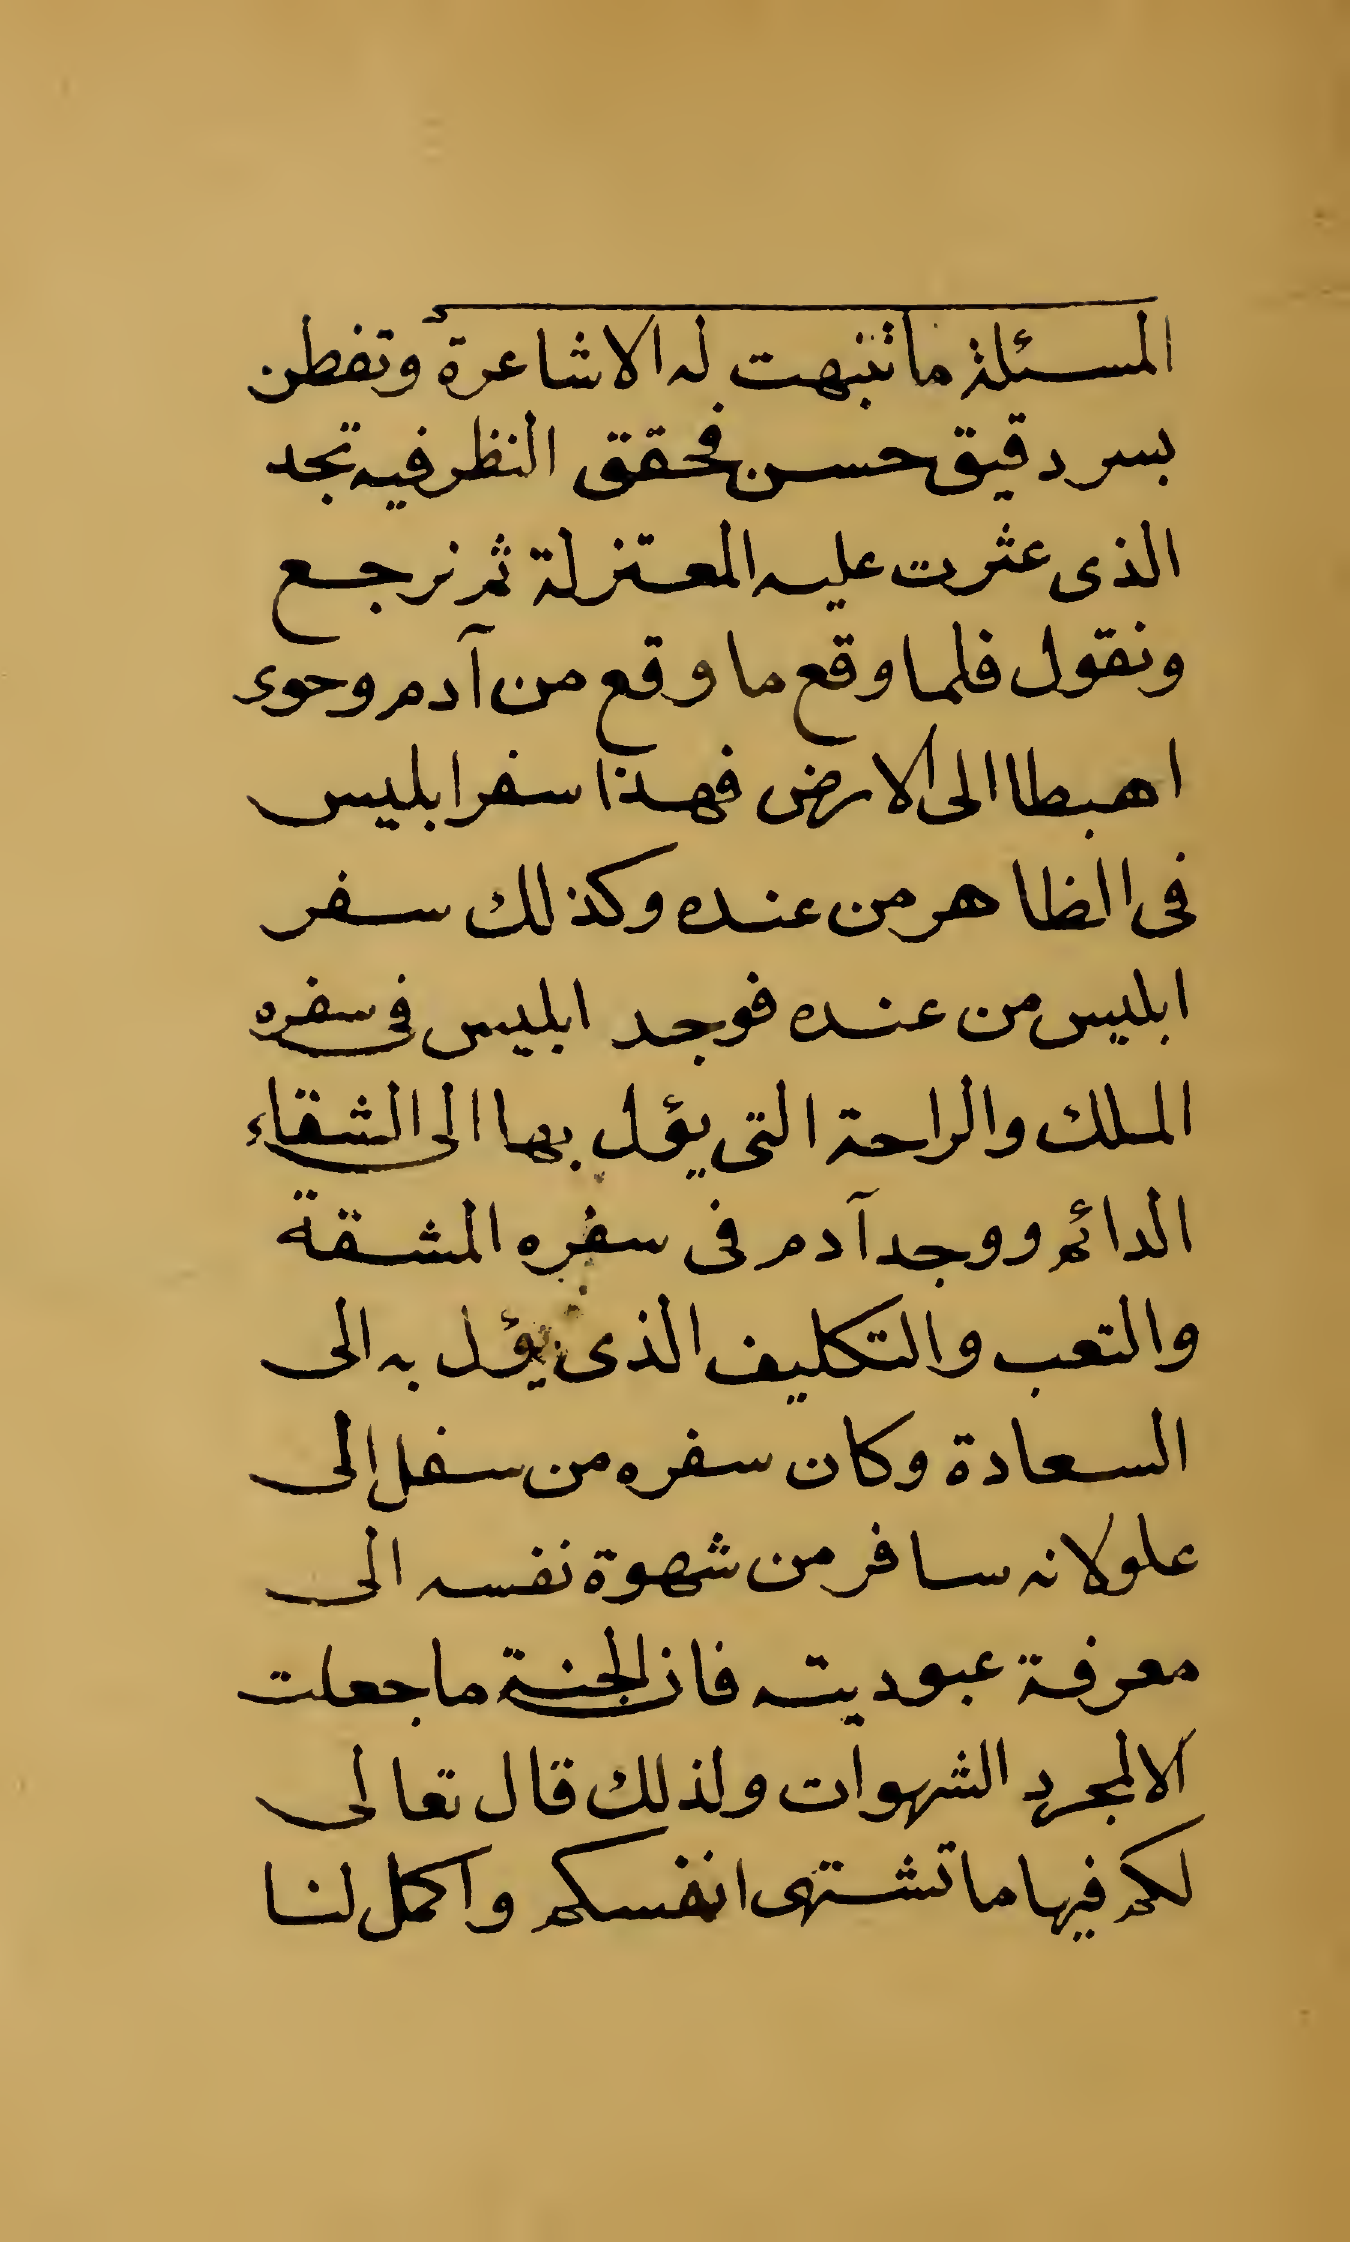 المسئلة ما تنبهت له الاشاعرة وتفطن
بسر دقيق حسن فحقق النظر فيه تجد
الذى عثرت عليه المعتزلة ثم نرجع
ونقول فلما وقع ما وقع من آدم وحوى
اهبطا الى الارض فهذا سفر ابليس
فى الظاهر من عنده وكذلك سفر
ابليس من عنده فوجد ابليس فى سفره
الملك والراحة التى يؤل بها الى الشقاء
الدائم ووجد آدم فى سفره المشقة
والتعب والتكليف الذى يؤل به الى
السعادة وكان سفره من سفل الى
علو لانه سافر من شهوة نفسه الى
معرفة عبوديته فان الجنة ما جعلت
الا لمجرد الشهوات ولذلك قال تعالى
لكم فيها ما تشتهى انفسكم واكمل لنا